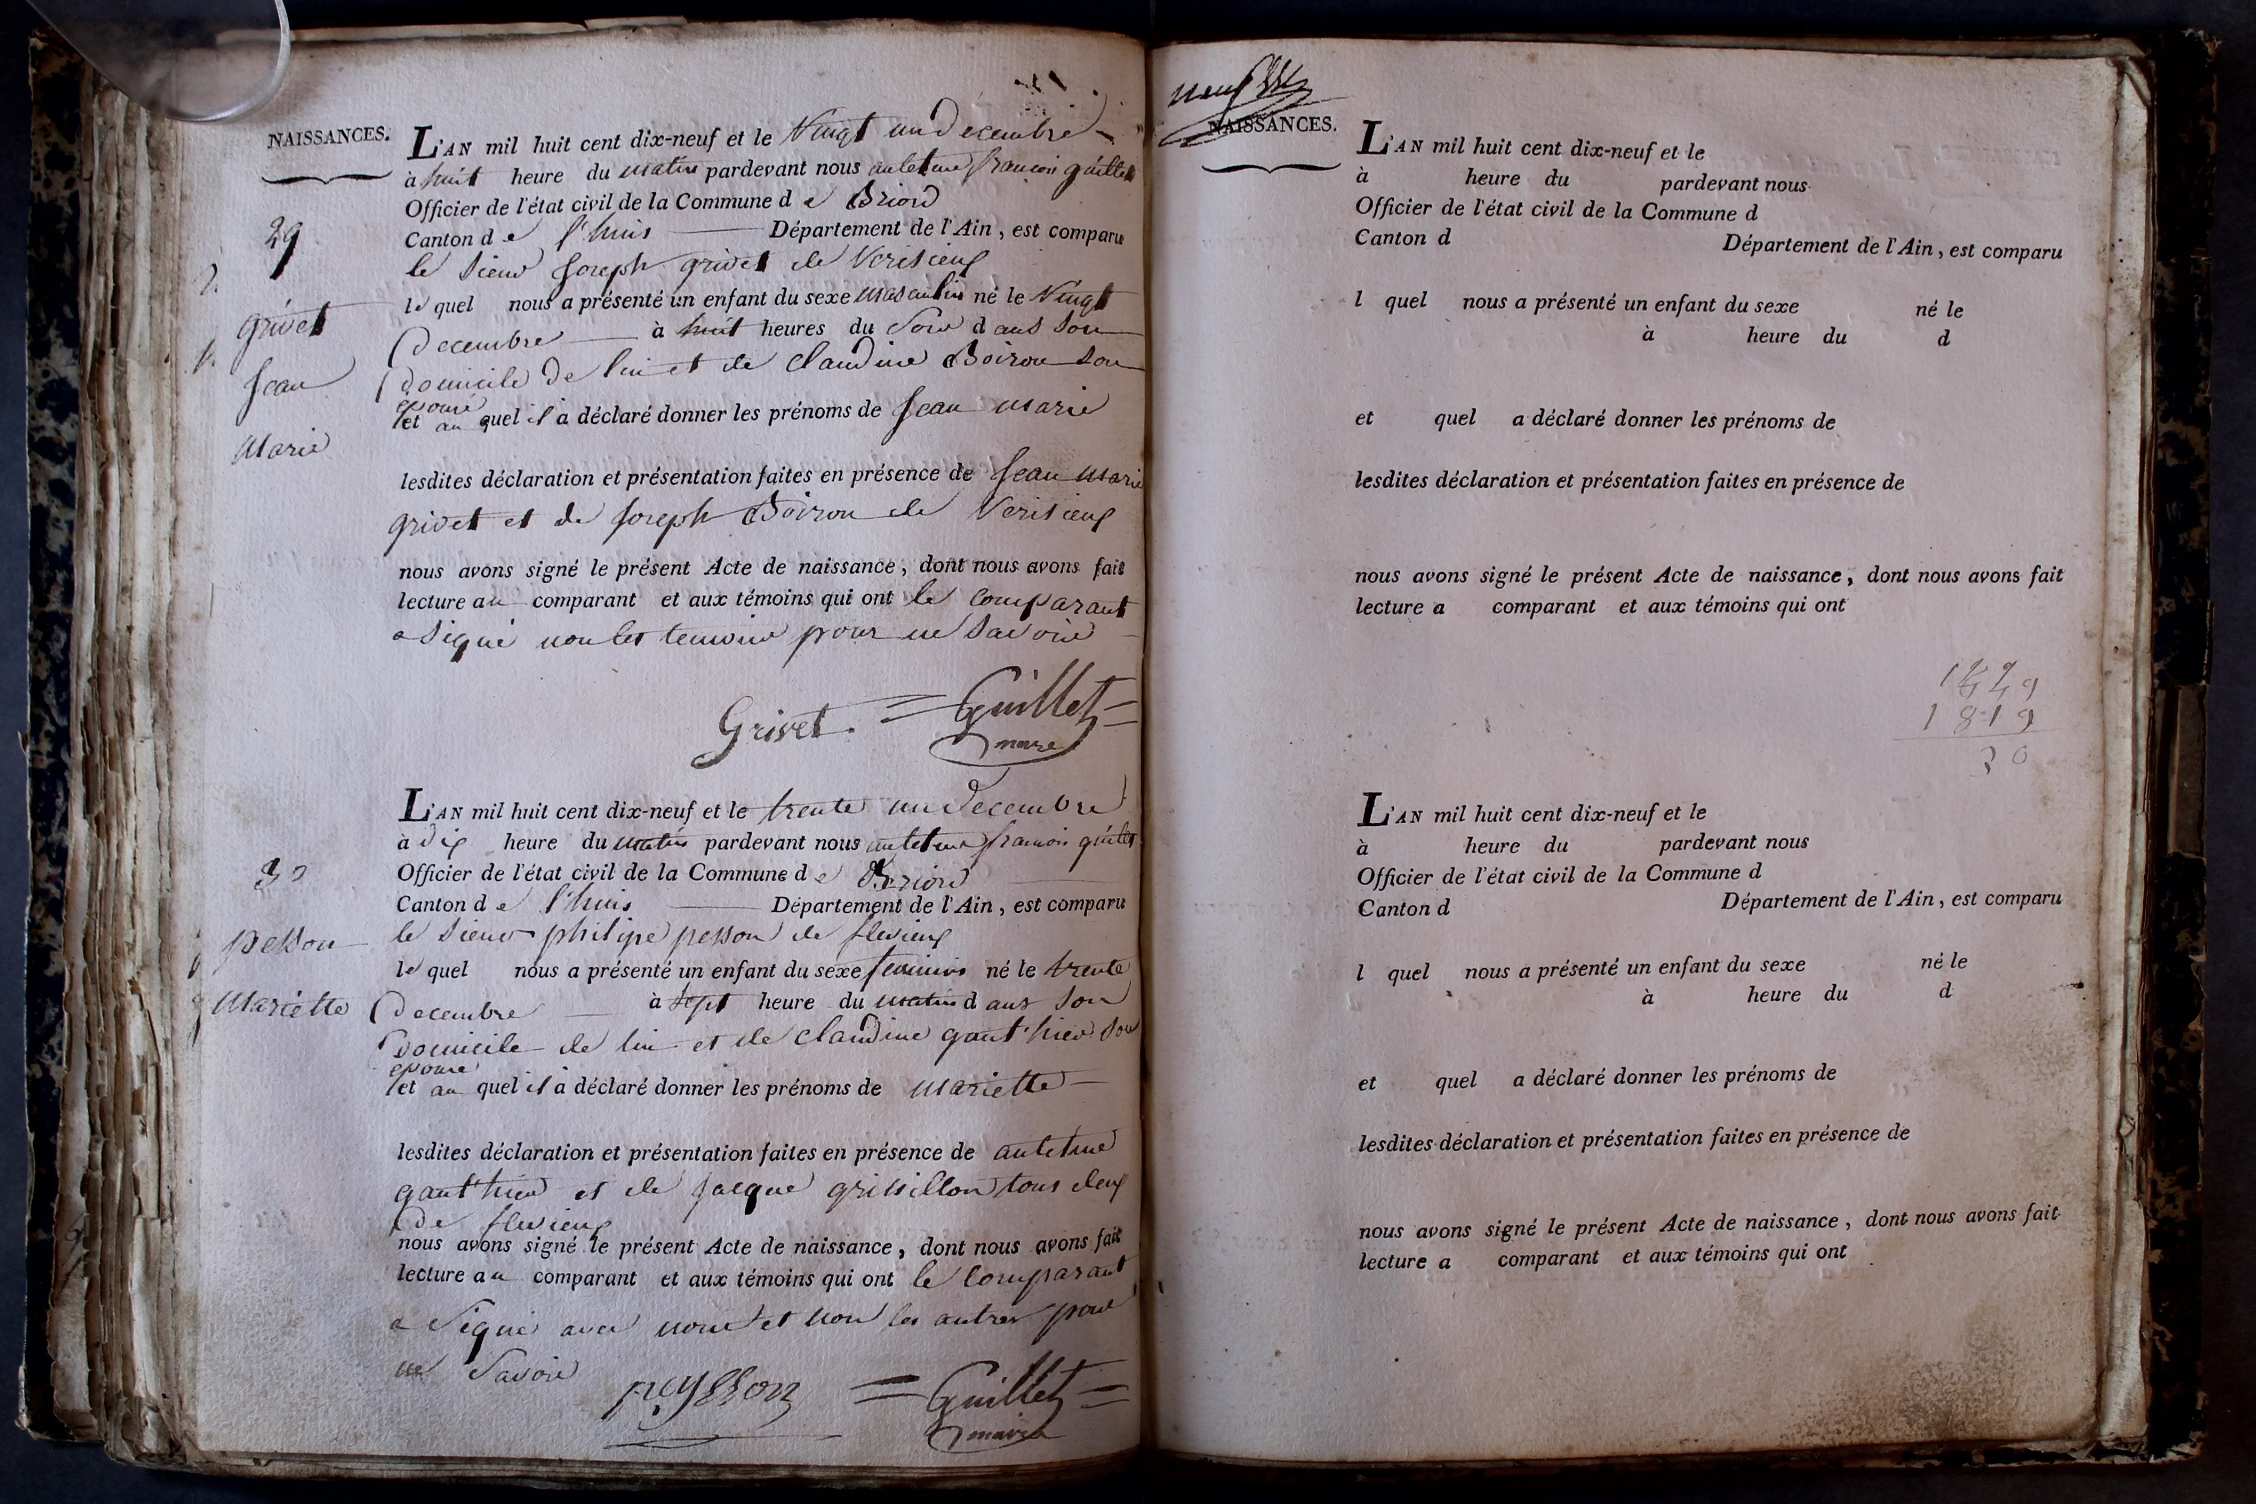 NAISSANCES.
L'AN mil huit cent dix-neuf et le Vingt un Decembre
à huit heure du matin pardevant nous antelme francois guillet
Officier de l'état civil de la Commune de Briord
Canton de l'huis Département de l'Ain, est comparu
le Sieur Joseph grivet de Verisieux
le quel nous a présenté un enfant du sexe masculin né le Vingt
Decembre à huit heures du Soir dans son
domicile De lui et de Claudine Boiron son
epouse
et au quel il a déclaré donner les prénoms de Jean marie
lesdites déclaration et présentation faites en présence de Jean marie
grivet et de Joseph Boiron de Verisieux
nous avons signé le présent Acte de naissance, dont nous avons fait
lecture au comparant et aux témoins qui ont le comparant
a Signé non les temoins pour ne Savoir
29
grivet
Jean
Marie
Grivet. =Guillet=
maire
L'AN mil huit cent dix-neuf et le trente un Decembre
à dix heure du matin pardevant nous antelme francois guillet
Officier de l'état civil de la Commune de Briord
Canton de l'huis Département de l'Ain, est comparu
le Sieur philipe pesson de flevieux
le quel nous a présenté un enfant du sexe feminin né le trente
Decembre à Sept heure du matin dans son
Domicile de lui et de Claudine gaut'hier son
epouse
et au quel il a déclaré donner les prénoms de mariette
lesdites déclaration et présentation faites en présence de antelme
gaut'hier et de Jacque grisillon tous deux
De flevieux
nous avons signé le présent Acte de naissance, dont nous avons fait
lecture au comparant et aux témoins qui ont le comparant
a Signé avec nous et non les autres pour
ne Savoir
30
pesson
Mariette
peysson =Guillet=
maire
neuf
NAISSANCES.
L'AN mil huit cent dix-neuf et le
à heure du pardevant nous
Officier de l'état civil de la Commune d
Canton d Département de l'Ain, est comparu
l quel nous a présenté un enfant du sexe né le
à heure du d
et quel a déclaré donner les prénoms de
lesdites déclaration et présentation faites en présence de
nous avons signé le présent Acte de naissance, dont nous avons fait
lecture a comparant et aux témoins qui ont
1819
30
L'AN mil huit cent dix-neuf et le
à heure du pardevant nous
Officier de l'état civil de la Commune d
Canton d Département de l'Ain, est comparu
l quel nous a présenté un enfant du sexe né le
à heure du d
et quel a déclaré donner les prénoms de
lesdites déclaration et présentation faites en présence de
nous avons signé le présent Acte de naissance, dont nous avons fait
lecture a comparant et aux témoins qui ont